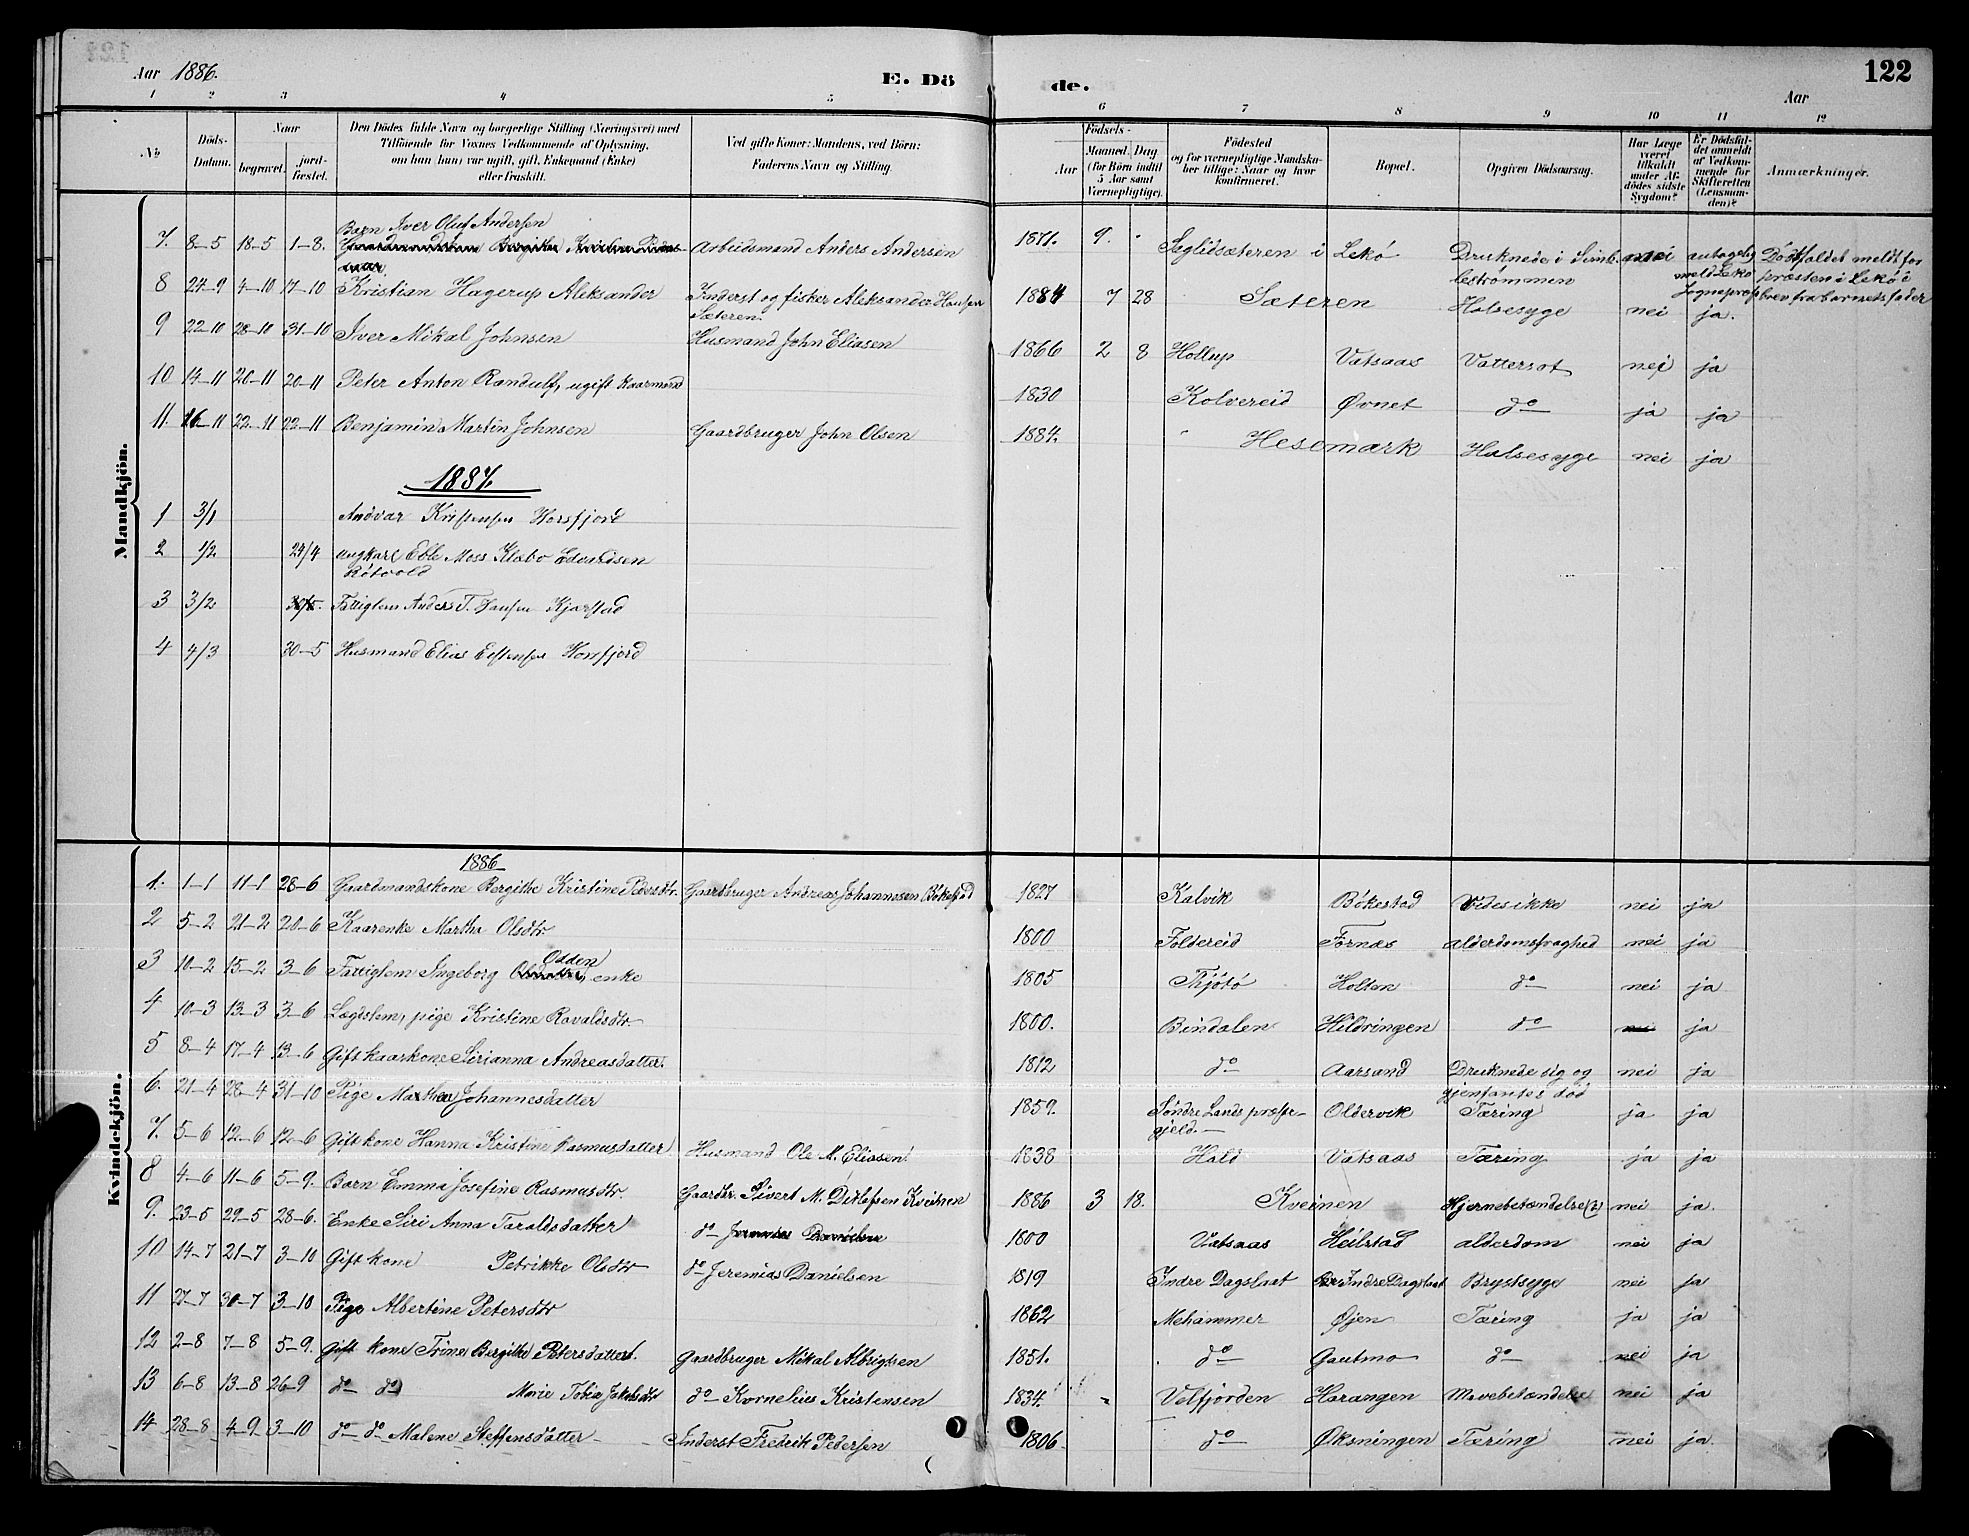 Aar 1886.
E. Dö
de.
122
Aar
1 2 3 4 5 6 7 8 9 10 11 12
No. Döds-Datum. Naar begravet. jord-fæstet. Den Dödes fulde Navn og borgerlige Stilling (Næringsvei) med Tilföiende for Voxnes Vedkommende af Oplysning, om han (hun) var ugift, gift, Enkemand (Enke) eller fraskilt. Ved gifte Koner: Mandens, ved Börn: Faderens Navn og Stilling. Födsels- Aar Maaned. Dag (for Börn indtil 5 Aar samt Værnepligtige). Födested og for værnepligtige Mandskaber tillige: Naar og hvor konfirmeret. Bopæl. Opgiven Dödsaarsag. Har Læge været tilkaldt under Afdödes sidste Sygdom? Er Dödsfaldet anmeldt af Vedkommende for Skifteretten (Lensmanden)? Anmærkninger.
Mandkjön.
7. 8-5 18-5 1-8. Barn Iver Oluf Andersen Arbeidsmand Anders Andersen 1871. 9. Sæglidsæteren i Lekø Druknede i Simlestrømmen nei meldt Leko Sognepræst Dödsfaldet meldt for præsten i Lekø i brev fra barnets fader
8 24-9 4-10 17-10 Kristian Hagerup Aleksander Inderst og fisker Aleksander Hansen Sæteren. 1884 7 28 Sæteren Halsesyge nei ja.
9 22-10 28-10 31-10 Iver Mikal Johnsen Husmand John Eliasen 1866 2 8 Hollup Vatsaas Vattersot nei ja
10 14-11 20-11 20-11 Peter Anton Randulf, ugift Kaarmand 1830 Kolvereid Øvnet do ja ja
11. 16-11 22-11 22-11 Benjamin Martin Johnsen Gaardbruger John Olsen 1884. Hesemark Halsesyge nei ja
1887
1 3/1 Andvar Kristensen Horsfjord
2 1/2 24/4 ungkarl Edle Moss Klæbo Edvardsen Røtvold
3 3/2 Fattiglem Anders T. Hansen Kjærstad
4 4/3 30-5 Husmand Elias Estensen Horsfjord
Kvindekjön.
1886
1. 1-1 11-1 28-6 Gaardmandskone Bergithe Kristine Pedersdtr. Gaardbruger Andreas Johannesen Bøkestad 1827 Kalvik Bökestad Vides ikke nei ja
2 5-2 21-2 20-6 Kaarenke Martha Olsdtr. 1800 Foldereid Fornæs alderdomssvaghed nei ja
3 10-2 15-2 3-6 Fattiglem Ingeborg Odden, enke 1805 Thjötö Holten do nei ja
4 10-3 13-3 3-6 Lægdslem, pige Kristine Ravaldsdtr. 1800. Bindalen Hildringen do nei ja
5 8-4 17-4 13-6 Gift kaarkone Sirianna Andreasdatter. 1812 do Aarsand Druknede sig og gjenfantes död nei ja
6. 21-4 28-4 31-10 Pige Marthea Johannesdatter 1859. Søndre Lands præstegjeld. Oldervik Tæring ja ja
7. 5-6 12-6 12-6 Gift kone Hanna Kristine Rasmusdatter Husmand Ole M. Eliasen 1838 Hald Vatsaas Tæring ja ja
8 4-6 11-6 5-9. Barn Emma Josefine Rasmusdtr. Gaardbr. Sivert M. Ditlefsen Kveinen 1886 3 18. Kveinen Hjernebetændelse (?) nei ja.
9. 23-5 29-5 28-6. Enke Siri Anna Taraldsdatter do Jeremias Danielsen 1800 Vatsaas Heilstad alderdom nei ja
10 14-7 21-7 3-10 Gift kone Petrikke Olsdtr do Jeremias Danielsen 1819 Indre Dagslaat Indre Dagslaat Brystsyge nei ja
11 27-7 30-7 3-10 Pige Albertine Petersdtr 1862 Mehammer Øjen Tæring ja ja
12 2-8 7-8 5-9. Gift kone Trine Bergithe Petersdatter. Gaardbruger Mikal Albrigtsen 1851. do Gautmo do nei ja
13 6-8 13-8 26-9 do do Marie Tobia Jakobsdtr do Kornelius Kristensen 1834. Velfjorden Harangen Mavebetændelse nei ja
14 28-8 4-9 3-10 do do Malene Steffensdatter Inderst Fredrik Pedersen 1806 do Øksningen Tæring nei ja.